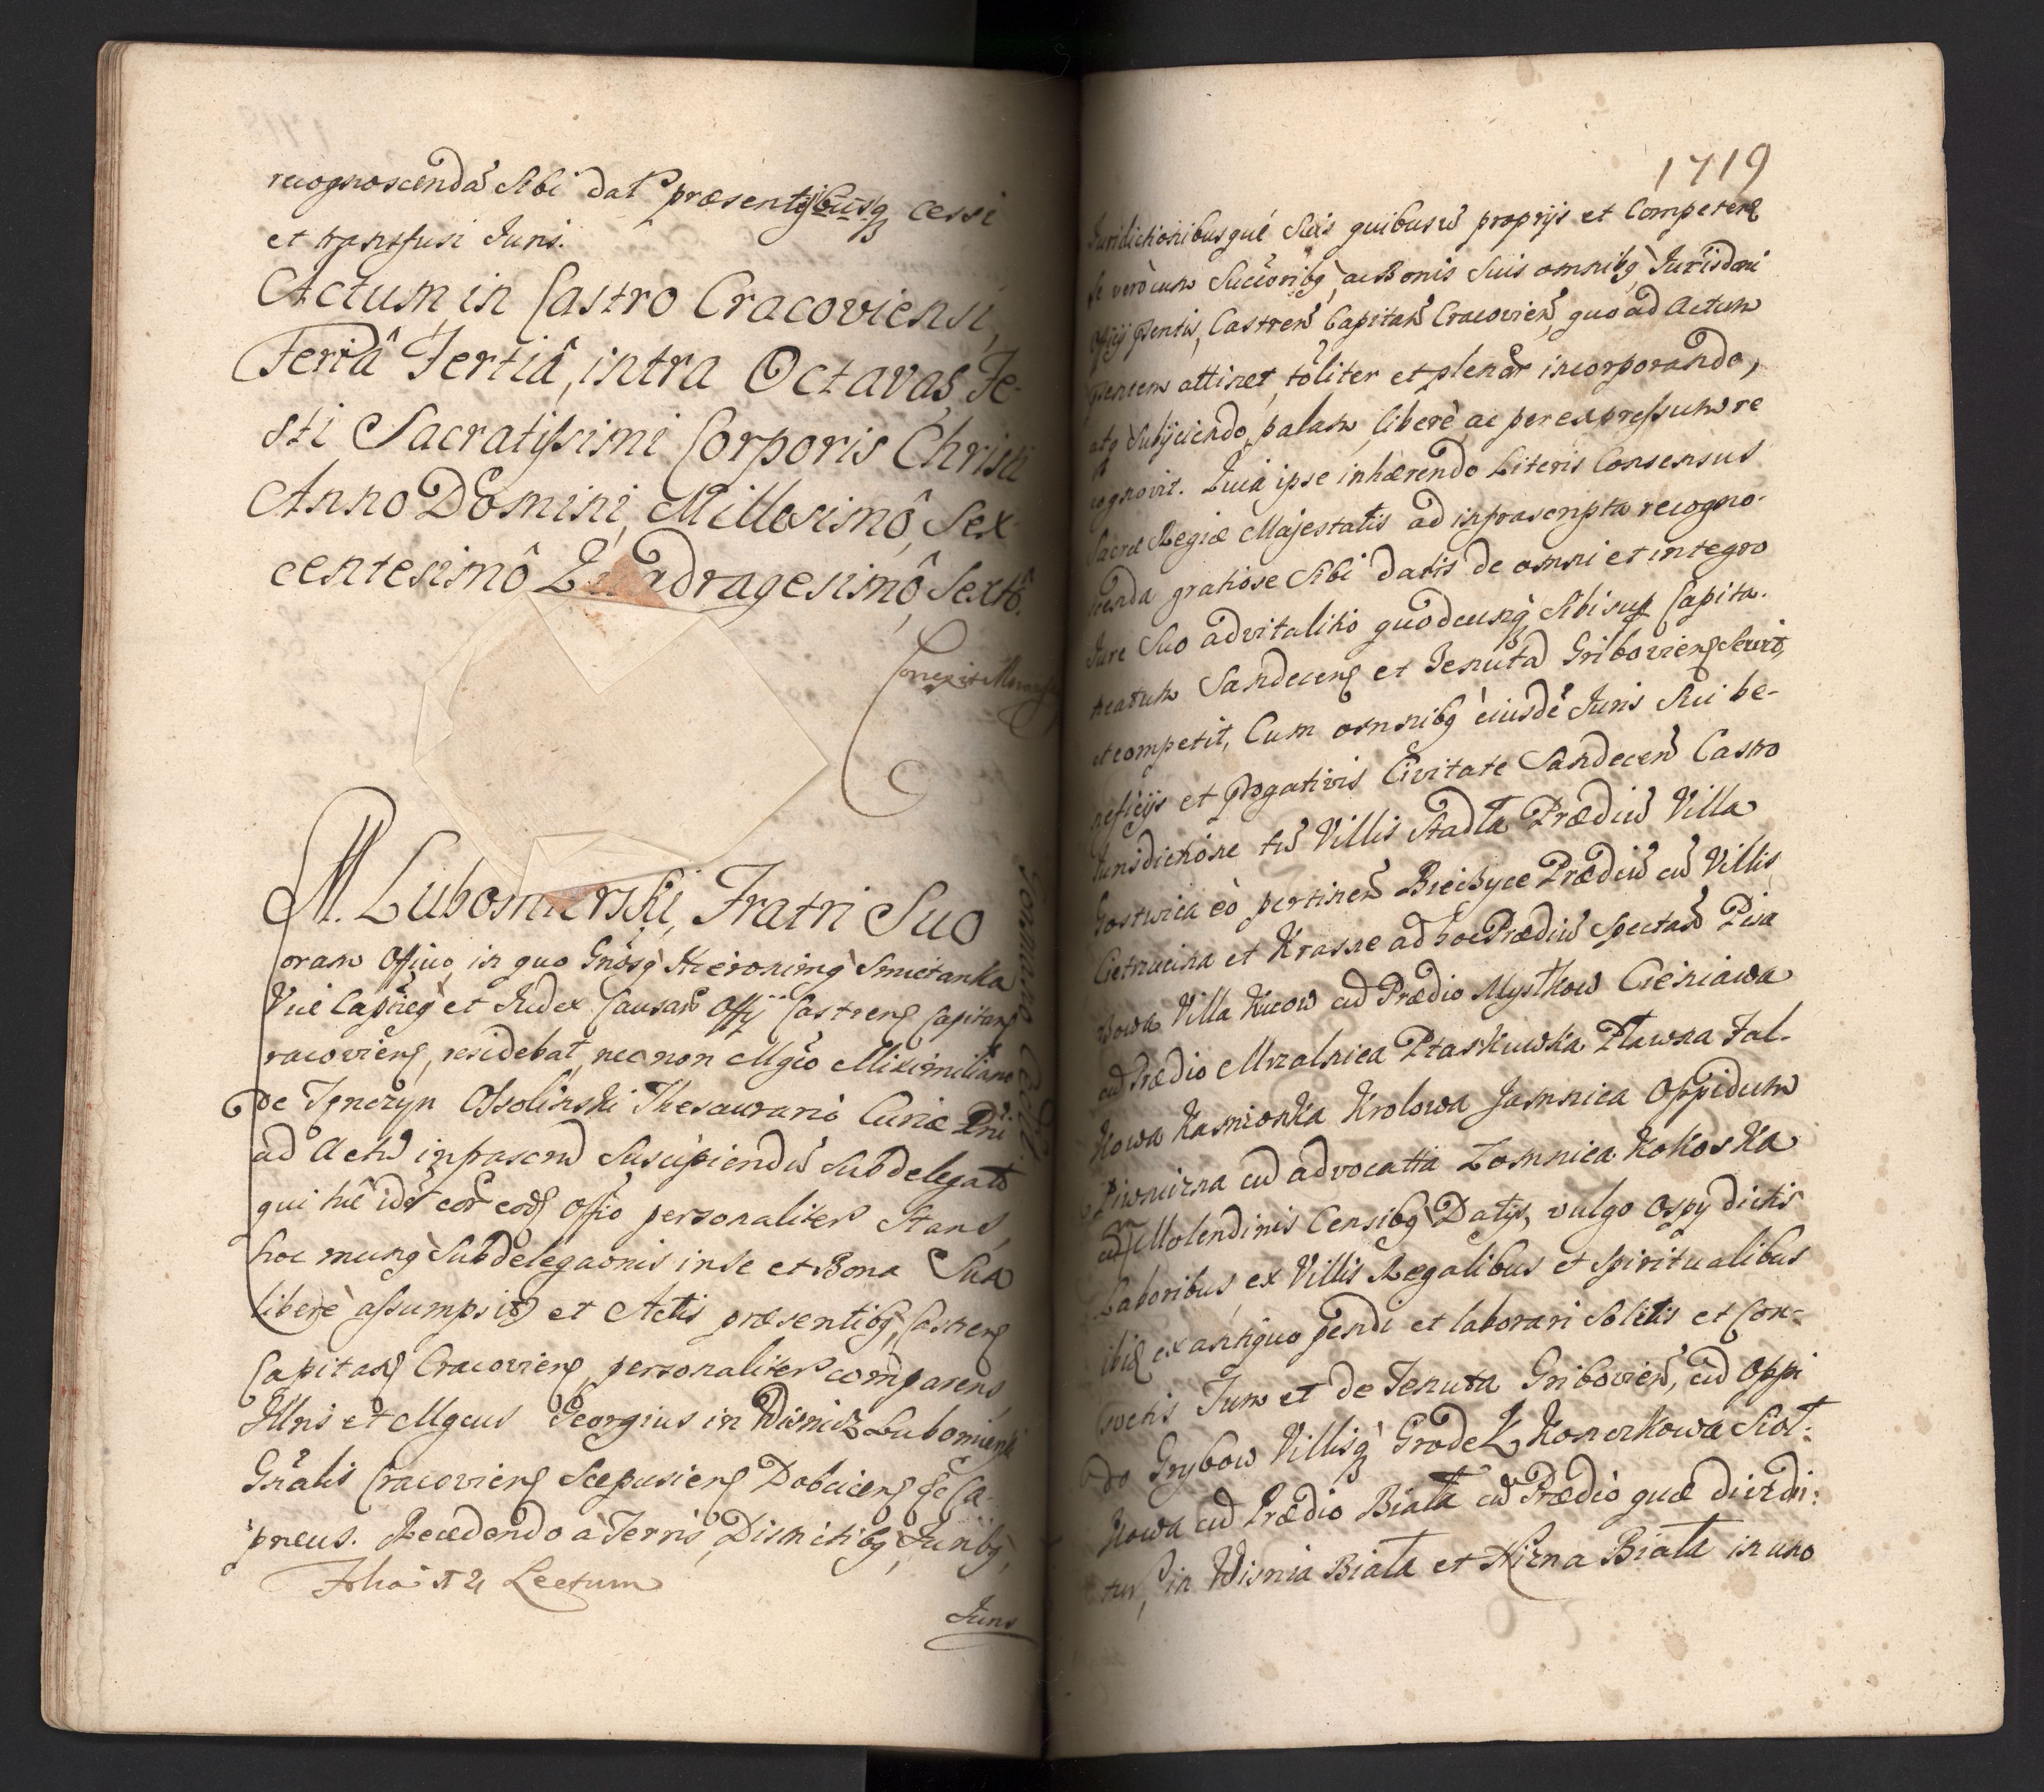 recognoscendã sibi dat præsentijbusq cessi
et transfusi Juris.
Actum in Castro Cracoviensi,
Feriâ Tertiâ, intra Octavas Fe-
sti Sacratissimi Corporis Christi
Anno Domini, Millesimô, Sex-
centesimô Quadragesimô, Sextô.
Correxit
M. Lubomirski, Fratri Suo
oram Officio, in quo Gnosq Hieronimq Smietanka
Vice Capneq et Judex Causarũ Offij Castrens Capitans
racoviens, residebat, nec non Mgco Miximiliano
de Tenczyn Ossolinski Thesaurario Curiæ Rni
ad Actũ infrascrũ Suscipiendũ Subdelegato
qui hic idẽ cor eodẽ Offio personaliter Stans,
hoc munq Subdelegaonis in se et Bona Sua
liberè assumpsit et Actis præsentibq, Castrens
Capitans Cracoviens personaliter comparens
Illris et Mgcus Georgius in Wisnicz Lubomirski
Gnalis Cracoviens Scepusiens Dobciens &c Ca-
pneus. Recedendo à Terris, Districtibq, Juribq,
Lectum
Juris
1719
Juridictionibusquè Suis quibusvis proprijs et Competeñ
se verò cum Succoribq, ac Bonis Suis omnibq, Jurisdoni
officij pntis, Castreñ Capitañ Cracovieñ, quo ad Actum
pntem attinet, toliter et plenar incorporando,
atq Subijciendo, palam, liberè, ac per expressum re
cognovit. Quia ipse inhærendo Literis Consensus
Sacræ Regiæ Majestatis ad infrascripta recogno-
scenda gratiose Sibi datis de omni et integro
Jure Suo advitalitio quodcunq Sibi sup Capita-
neatum Sandecens et Tenutã Gribowiens Servit,
et competit, Cum omnibq eiusdẽ Juris Sui be-
neficijs et prrogativis Civitate Sandeceñ Castro
Jurisdictione tũ Villis Stadła Prædiũ Villa
Gostwica eò pertineñ Brzeisyce Prædiũ cũ Villis
Cetnucina et Krasne ad hoc Prædiũ Spectañ Pisa
rzowa Villa Kucow cũ Prædio Mystkow Cieniawa
cũ Prædio Mrzalnica Ptaskuwka Pławna Fal-
kowa Kamionka Krolowa Jamnica Oppidum
Piwniczna cũ advocatia Łomnica Kokoska
cũ Molendinis Censibq Datijs, vulgo Ospy dictis
Laboribus ex Villis Regalibus et Spiritualibus
ibiq ex antiquo pendi et laborari Solitis et Con-
svetis Tum et de Tenuta Gribovieñ, cũ Oppi
do Grybow Villisq Grodek Konczkowa Siol-
kowa cũ Prædio Biała cũ Prædiò quæ dividũ-
tur, in Wisnia Biała et Nizna Biała in uno